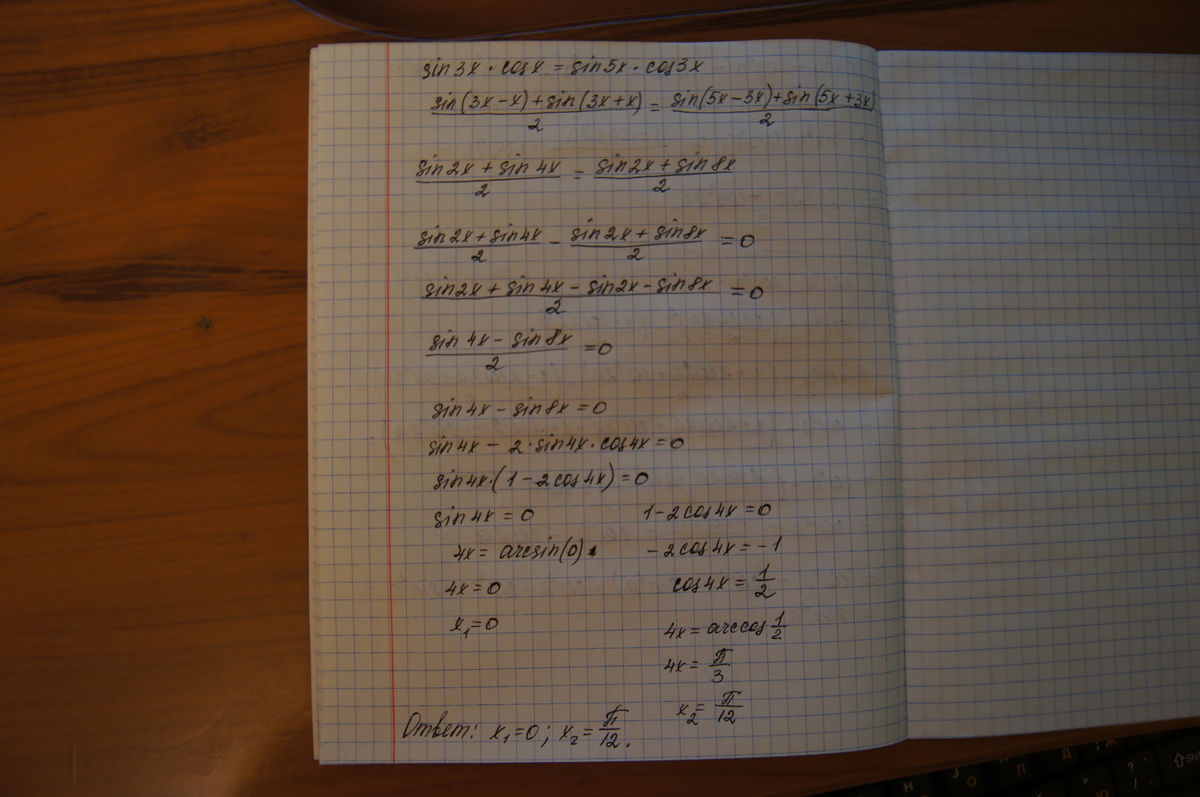 sin3x · cosx = sin5x · cos3x
sin(3x-x)+sin(3x+x)/2 = sin(5x-3x)+sin(5x+3x)/2
sin2x+sin4x/2 = sin2x+sin8x/2
sin2x+sin4x/2 - sin2x+sin8x/2 = 0
sin2x+sin4x-sin2x-sin8x/2 = 0
sin4x-sin8x/2 = 0
sin4x - sin8x = 0
sin4x - 2·sin4x·cos4x = 0
sin4x·(1-2cos4x) = 0
sin4x = 0 1-2cos4x = 0
4x = arcsin(0) -2cos4x = -1
4x = 0 cos4x = 1/2
x₁ = 0 4x = arccos 1/2
4x = π/3
x₂ = π/12
Ответ: x₁ = 0; x₂ = π/12.